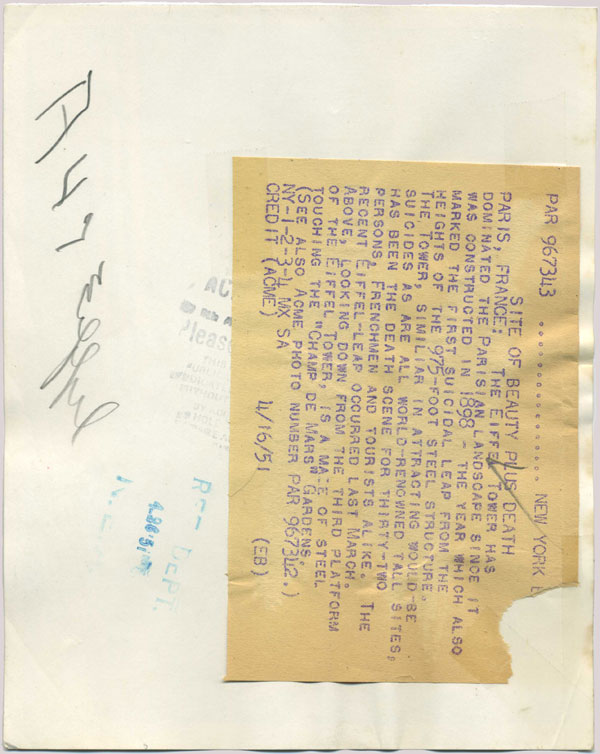 PAR 967343 .......... NEW YORK
SITE OF BEAUTY PLUS DEATH
PARIS, FRANCE: THE EIFFEL TOWER HAS
DOMINATED THE PARISIAN LANDSCAPE SINCE IT
WAS CONSTRUCTED IN 1898 - THE YEAR WHICH ALSO
MARKED THE FIRST SUICIDAL LEAP FROM THE
HEIGHTS OF THE 975-FOOT STEEL STRUCTURE.
THE TOWER, SIMILIAR IN ATTRACTING WOULD-BE
SUICIDES AS ARE ALL WORLD-RENOWNED TALL SITES,
HAS BEEN THE DEATH SCENE FOR THIRTY-TWO
PERSONS, FRENCHMEN AND TOURISTS ALIKE. THE
RECENT EIFFEL-LEAP OCCURRED LAST MARCH.
ABOVE, LOOKING DOWN FROM THE THIRD PLATFORM
OF THE EIFFEL TOWER, IS A MAZE OF STEEL
TOUCHING THE "CHAMP DE MARS" GARDENS.
(SEE ALSO ACME PHOTO NUMBER PAR 967342.)
NY-1-2-3-4 MX SA
CREDIT (ACME) 4/16/51 (EB)
DEPT.